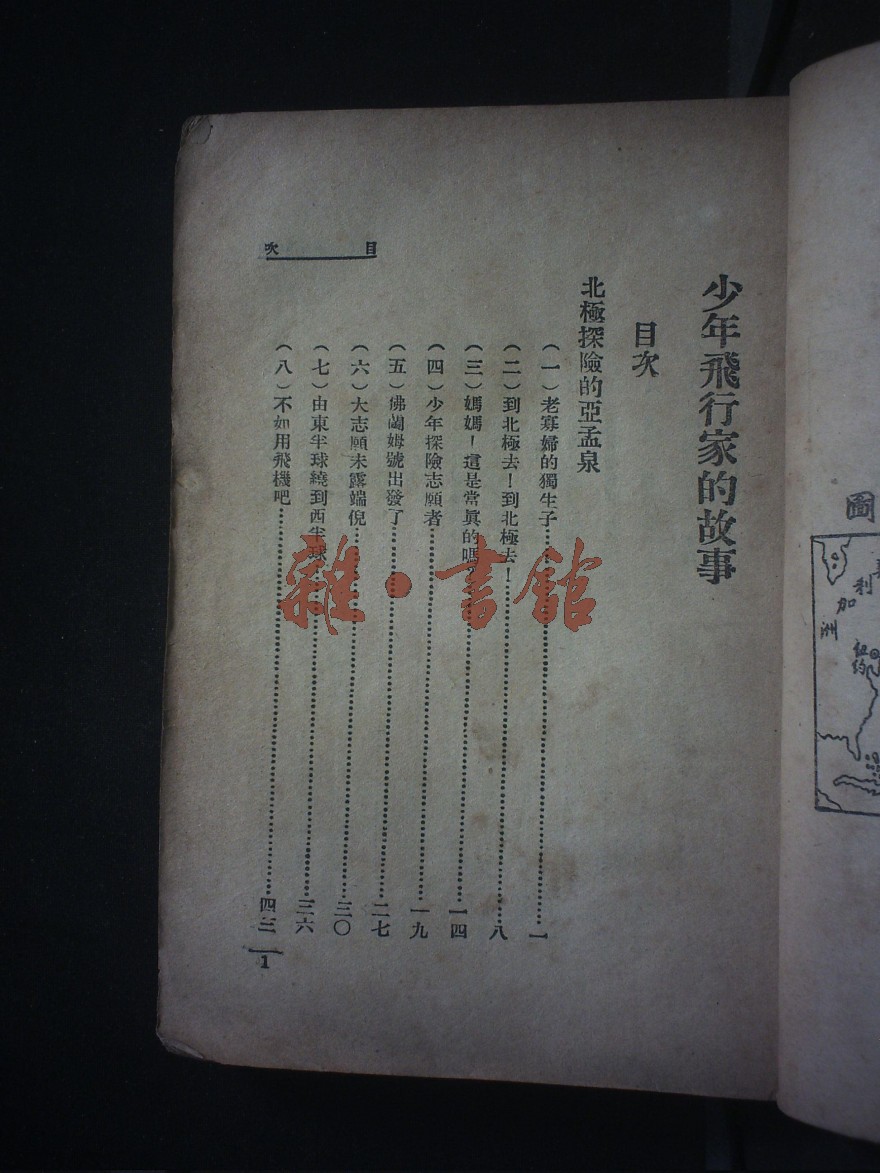 少年飛行家的故事
目次
北極探險的亞孟泉
(一)老寡婦的獨生子……一
(二)到北極去!到北極去!……八
(三)媽媽!這是當眞的嗎?……一四
(四)少年探險志願者……一九
(五)佛蘭姆號出發了……二七
(六)大志願未露端倪……三〇
(七)由東半球繞到西半球……三六
(八)不如用飛機吧……四三
目次
1
雜·書館
圖
利
加
至
紐約